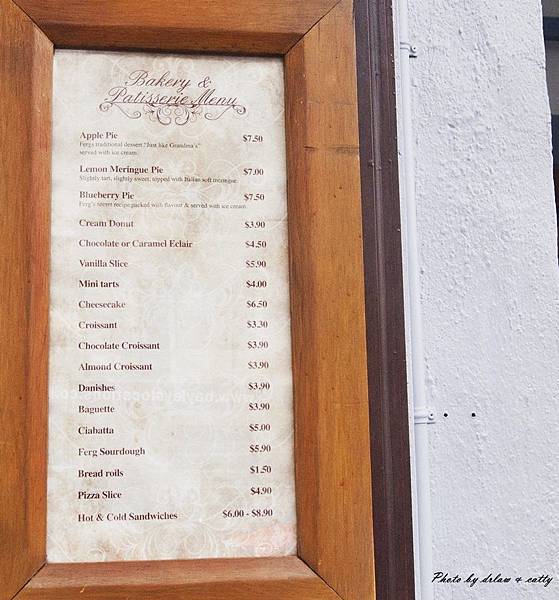 Bakery &
Patisserie Menu
Apple Pie $7.50
Fergs traditional dessert "Just like Grandma's"
served with ice cream.
Lemon Meringue Pie $7.00
Slightly tart, slightly sweet, topped with Italian soft meringue.
Blueberry Pie $7.50
Ferg's secret recipe packed with flavour & served with ice cream.
Cream Donut $3.90
Chocolate or Caramel Eclair $4.50
Vanilla Slice $5.90
Mini tarts $4.00
Cheesecake $6.50
Croissant $3.30
Chocolate Croissant $3.90
Almond Croissant $3.90
Danishes $3.90
Baguette $3.90
Ciabatta $5.00
Ferg Sourdough $5.90
Bread roils $1.50
Pizza Slice $4.90
Hot & Cold Sandwiches $6.00 - $8.90
Photo by drlaw & catty